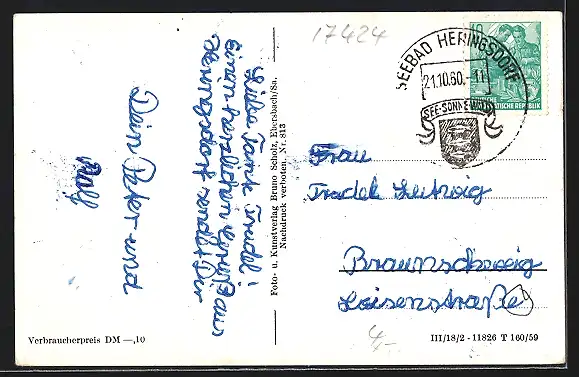 17424
SEEBAD HERINGSDORF
21.10.60.-11
SEE-SONNE-WALD
10
DEUTSCHE
DEMOKRATISCHE REPUBLIK
Liebe Tante Trudel!
Einen herzlichen Gruß aus
Heringsdorf sendet Dir
Dein Peter und
Rolf
Foto- u. Kunstverlag Bruno Scholz, Ebersbach/Sa.
Nachdruck verboten. Nr. 813
Frau
Trudel
Braunschweig
Luisenstraße
4,-
Verbraucherpreis DM —,10
III/18/2 - 11826 T 160/59